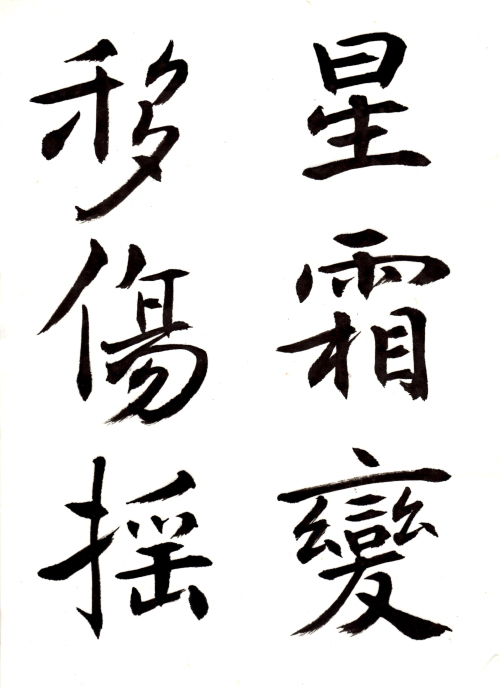 星霜變
移傷摇